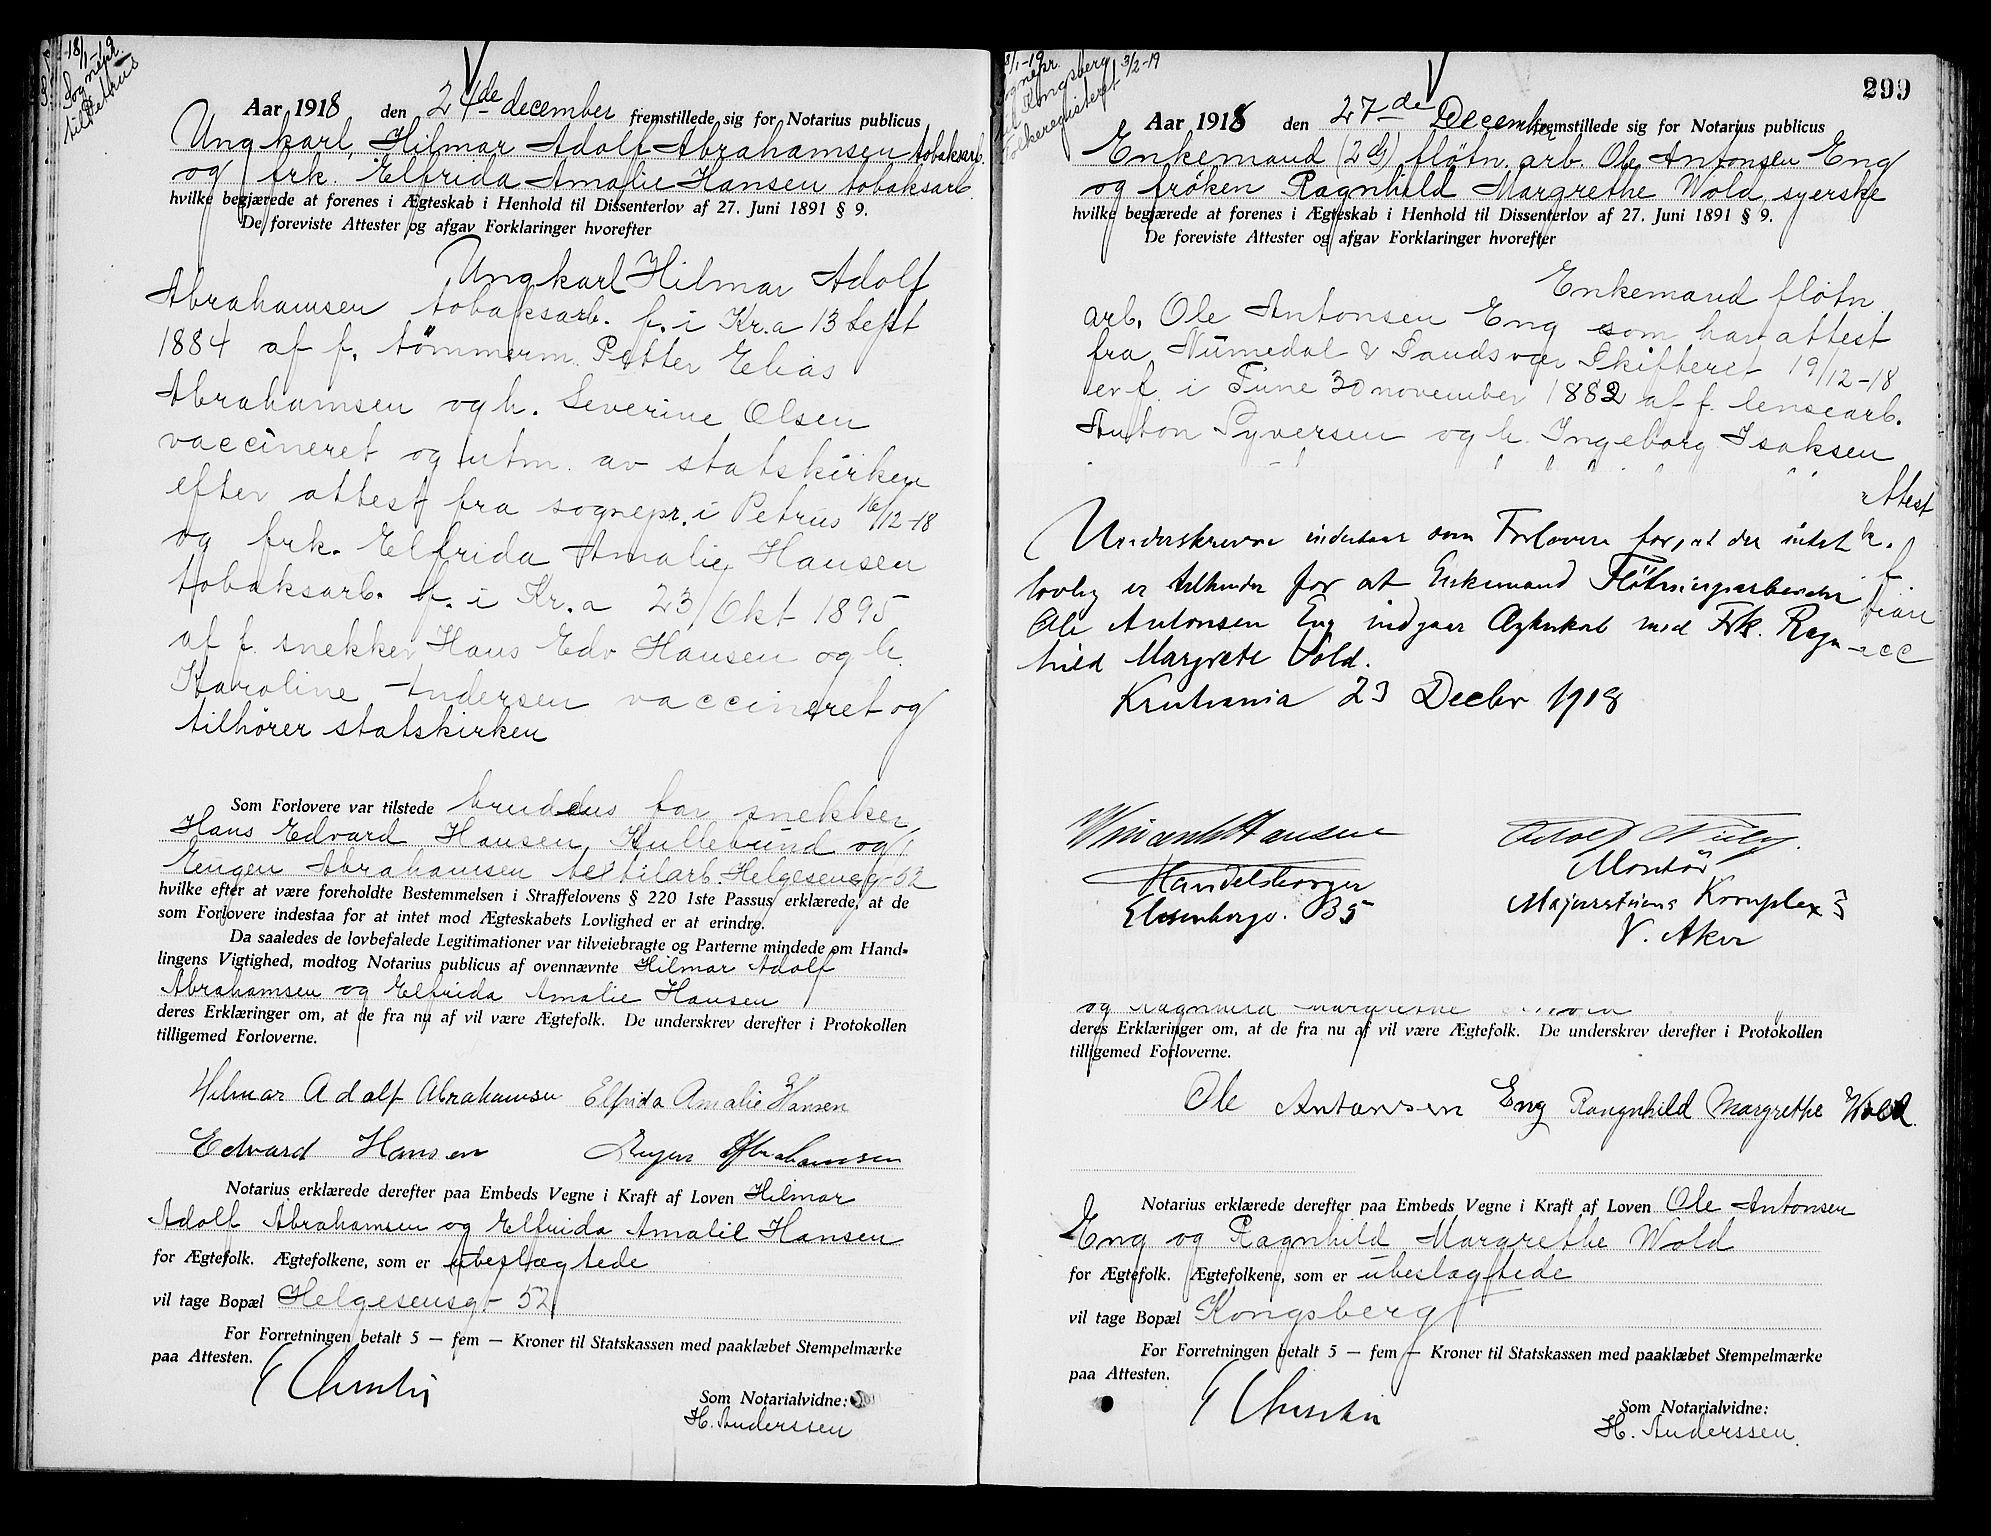 18/1-19.
Sognepr.
til Petrus
Aar 1918 den 24de december fremstillede sig for Notarius publicus
Ungkarl, Hilmar Adolf Abrahamsen tobaksarb.
og frk. Elfrida Amalie Hansen tobaksarb.
hvilke begjærede at forenes i Ægteskab i Henhold til Dissenterlov af 27. Juni 1891 § 9.
De foreviste Attester og afgav Forklaringer hvorefter
Ungkarl Hilmar Adolf
Abrahamsen tobaksarb. f. i Kr.a 13 Sept
1884 af f. tömmerm. Petter Elias
Abrahamsen og h. Severine Olsen
vaccineret og utm. av statskirken
efter attest fra sognepr. i Petrus 16/12-18
og frk. Elfrida Amalie Hansen
tobaksarb. f. i Kr.a 23/Okt 1895
af f. snekker Hans Edv Hansen og h.
Karoline Andersen vaccineret og
tilhører statskirken
Som Forlovere var tilstede brudens far snekker
Hans Edvard Hansen, Hullebund og
Eugen Abrahamsen textilarb. Helgesensg-52
hvilke efter at være foreholdte Bestemmelsen i Straffelovens § 220 1ste Passus erklærede, at de
som Forlovere indestaa for at intet mod Ægteskabets Lovlighed er at erindre.
Da saaledes de lovbefalede Legitimationer var tilveiebragte og Parterne mindede om Hand-
lingens Vigtighed, modtog Notarius publicus af ovennævnte Hilmar Adolf
Abrahamsen og Elfrida Amalie Hansen
deres Erklæringer om, at de fra nu af vil være Ægtefolk. De underskrev derefter i Protokollen
tilligemed Forloverne.
Hilmar Adolf Abrahamsen Elfrida Amalie Hansen
Edvard Hansen Eugen Abrahamsen
Notarius erklærede derefter paa Embeds Vegne i Kraft af Loven Hilmar
Adolf Abrahamsen og Elfrida Amalie Hansen
for Ægtefolk. Ægtefolkene, som er ubeslægtede
vil tage Bopæl Helgesensg- 52
For Forretningen betalt 5 — fem — Kroner til Statskassen med paaklæbet Stempelmærke
paa Attesten.
Som Notarialvidne:
H. Anderssen
299
8/1-19
Sognepr.
til Kongsberg
Folkeregisteret 3/2-19
Aar 1918 den 27de December fremstillede sig for Notarius publicus
Enkemand (2 g) fløtn. arb. Ole Antonsen Eng
og frøken Ragnhild Margrethe Wold, syerske
hvilke begjærede at forenes i Ægteskab i Henhold til Dissenterlov af 27. Juni 1891 § 9.
De foreviste Attester og afgav Forklaringer hvorefter
Enkemand fløtn.
arb. Ole Antonsen Eng som har attest
fra Numedal & Sandsvær Skifteret 19/12-18
er f. i Tune 30 november 1882 af f. lensearb.
Anton Syversen og h. Ingeborg Isaksen
Attest
Underskrevne indestaar som Forlovere for, at der intet
lovlig er tilhinder for at Enkemand Fløtningsarbeider
Ole Antonsen Eng indgaar Ægteskab med Frk. Ragn-
hild Margrete Vold.
Kristiania 23 Decbr 1918
Hansen Adolf
Handelsborger Montör
Elisenbergv. 35 Majorstuens Komplex 3
V. Aker
og Ragnhild Margrethe
deres Erklæringer om, at de fra nu af vil være Ægtefolk. De underskrev derefter i Protokollen
tilligemed Forloverne.
Ole Antonsen Eng Rangnhild Margrethe Wold.
Notarius erklærede derefter paa Embeds Vegne i Kraft af Loven Ole Antonsen
Eng og Ragnhild Margrethe Wold
for Ægtefolk. Ægtefolkene, som er ubeslagtede
vil tage Bopæl Kongsberg
For Forretningen betalt 5 — fem — Kroner til Statskassen med paaklæbet Stempelmærke
paa Attesten.
Som Notarialvidne:
H. Anderssen.